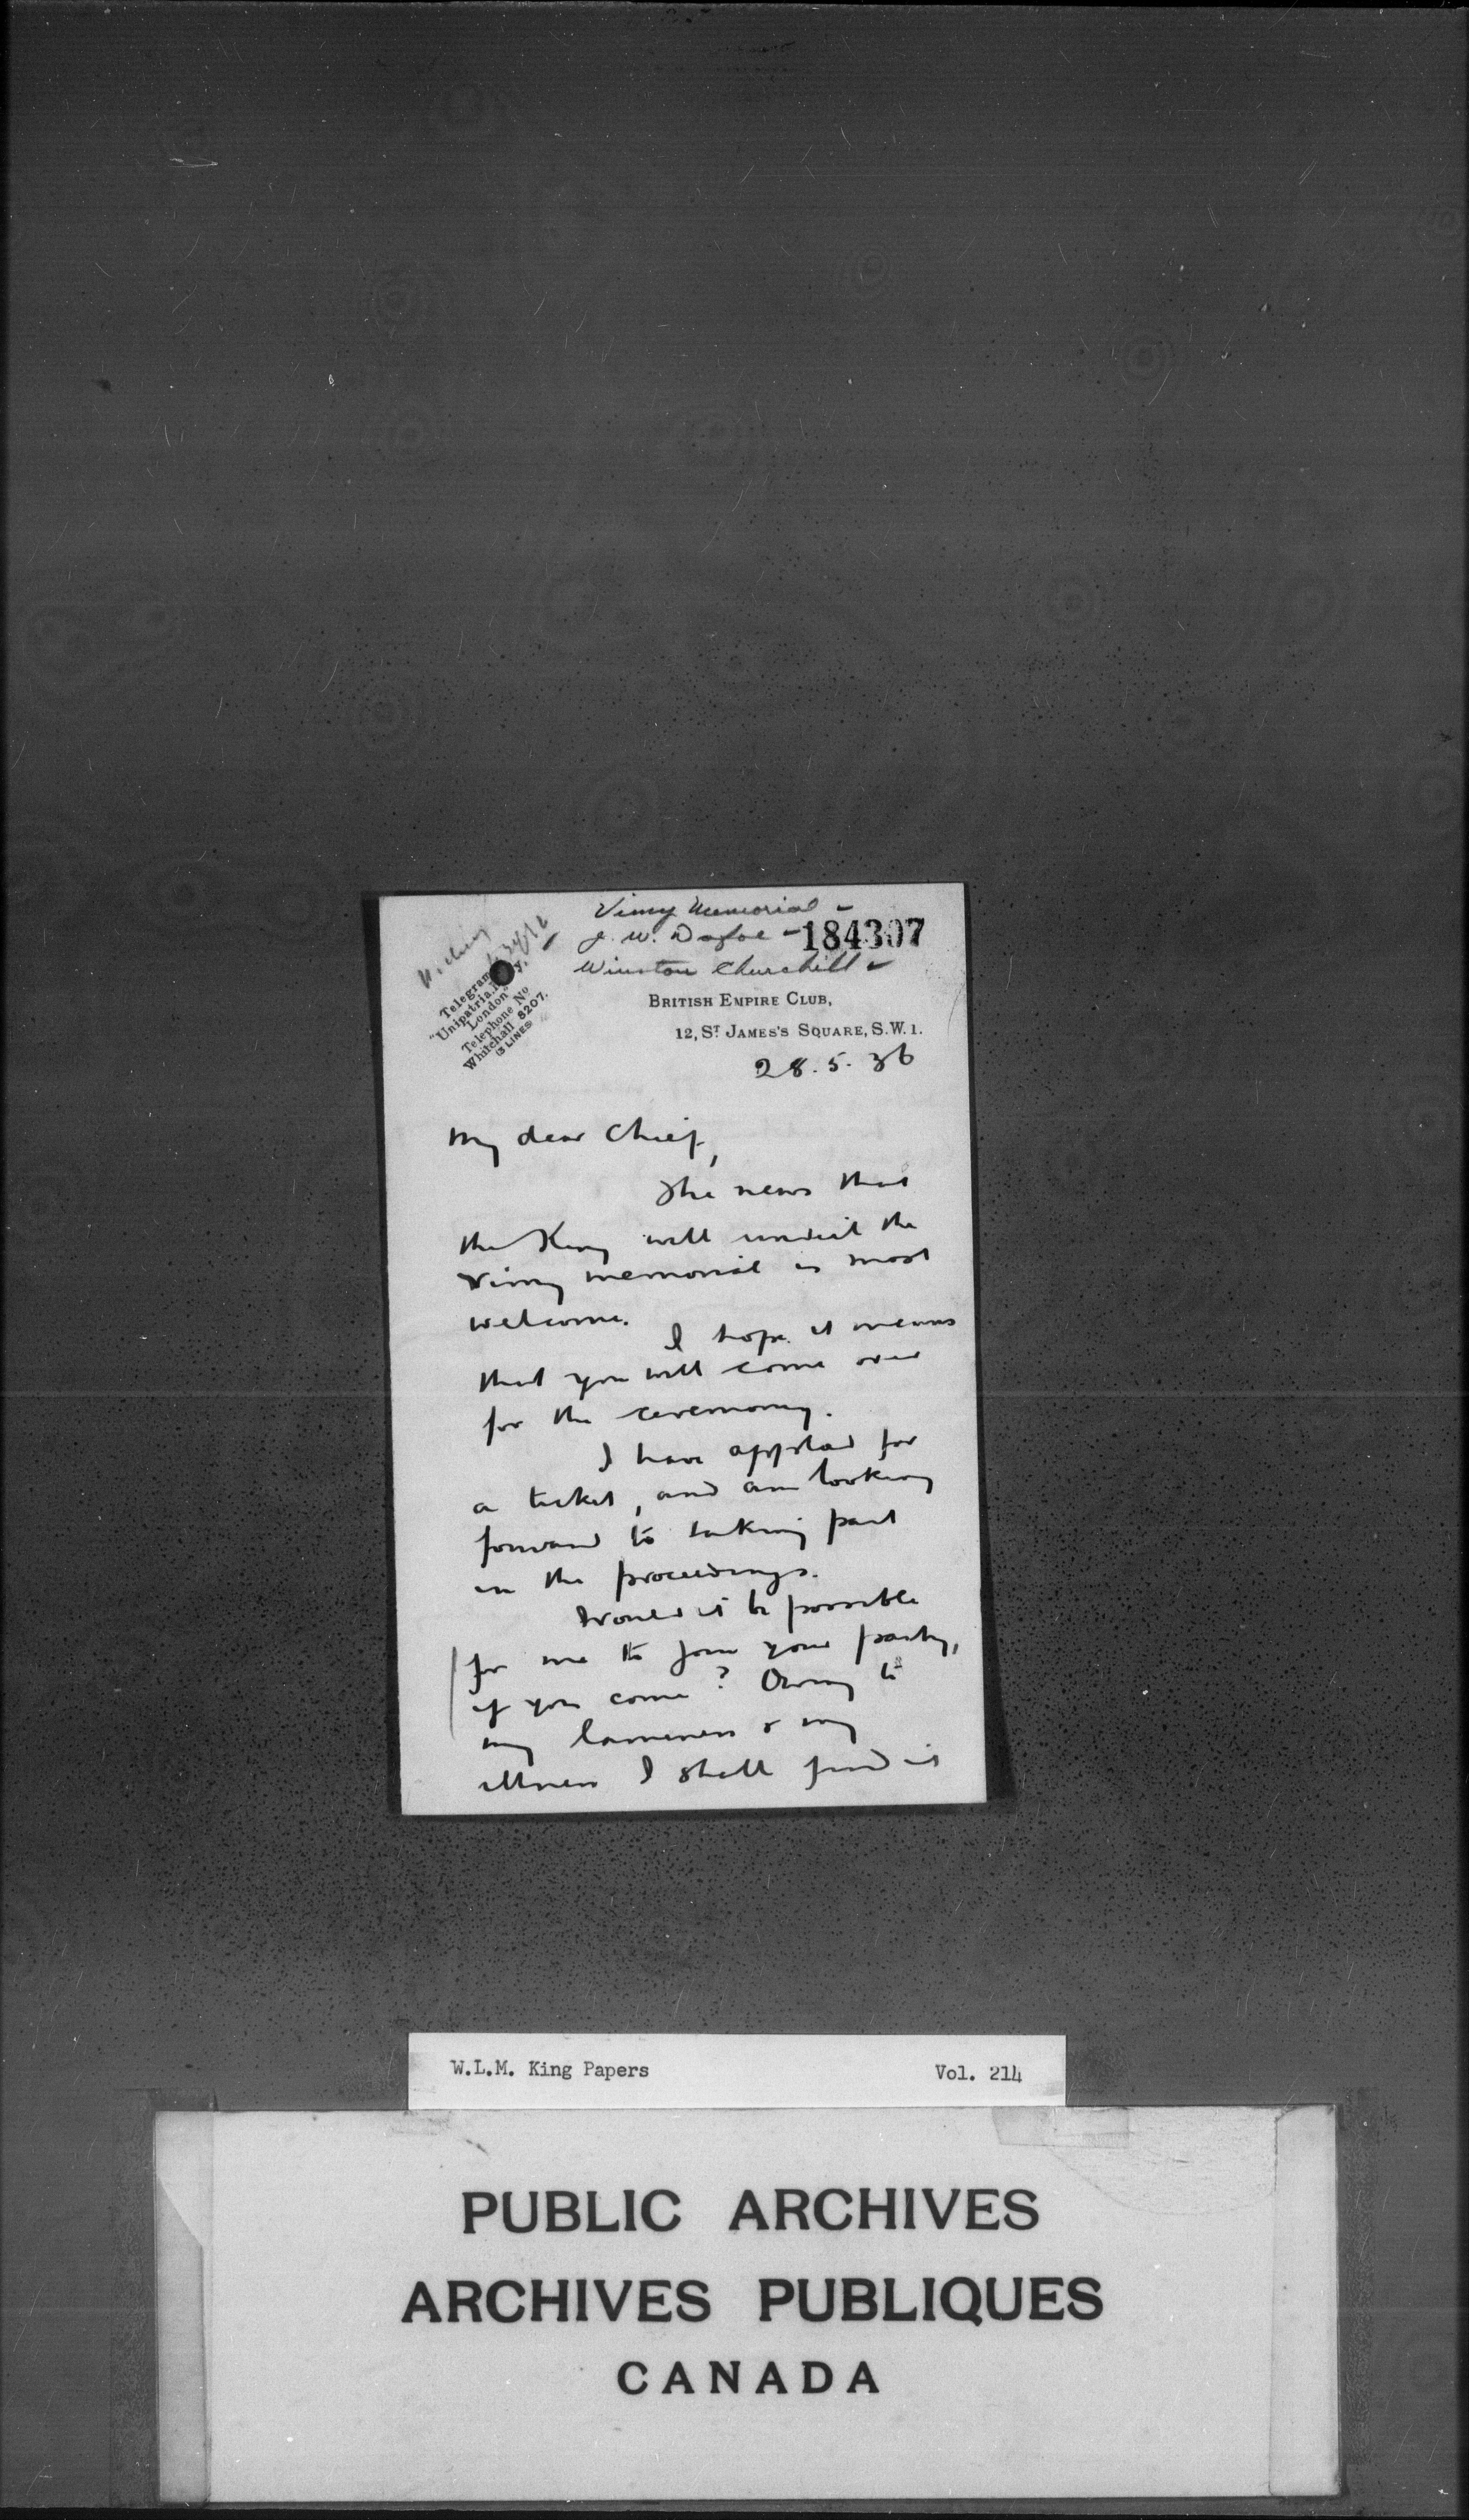 Vimy Memorial -
J. W. Dafoe - 184307
Winston Churchill -
Telegrams
"Unipatria,
London"
Telephone No
Whitehall 8207.
(3 LINES)
BRITISH EMPIRE CLUB,
12, ST JAMES'S SQUARE, S.W.1.
28.5.36
My dear Chief,
The news that
the King will unveil the
Vimy memorial is most
welcome. I hope it means
that you will come over
for the ceremony.
I have applied for
a ticket, and am looking
forward to taking part
in the proceedings.
Would it be possible
for me to join your party,
if you come? Owing to
my lameness & my
illness I shall find it
W.L.M. King Papers Vol. 214
PUBLIC ARCHIVES
ARCHIVES PUBLIQUES
CANADA